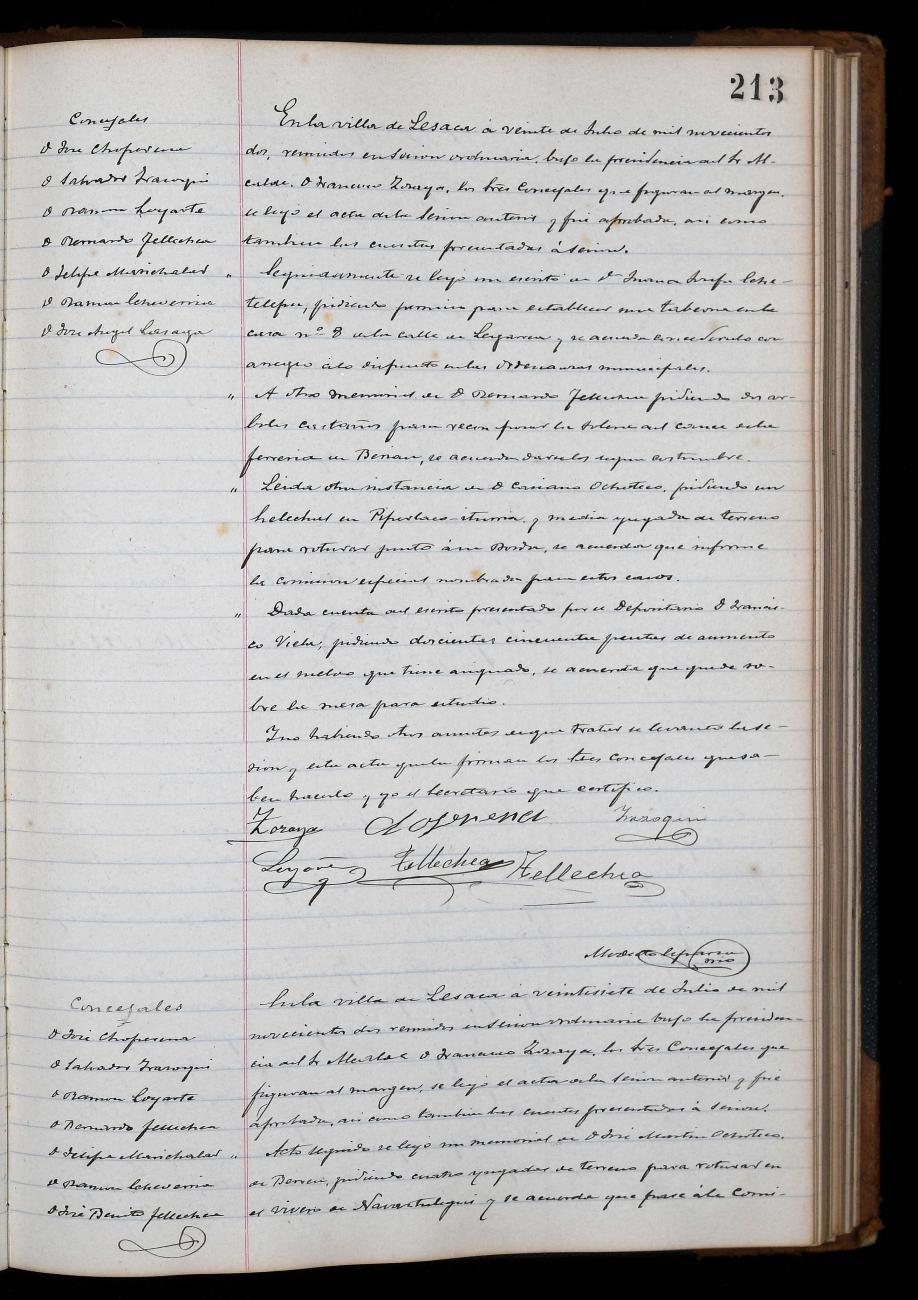 213
Concejales
D José Choperena
D Salvador Irazoqui
D Ramon Loyarte
D Bernardo Tellechea
D Felipe Marichalar
D Ramon Echeverria
D José Angel
En la villa de Lesaca á veinte de Julio de mil novecientos
dos, reunidos en sesion ordinaria, bajo la presidencia del Sr Al-
calde, D Francisco Zoraya, los Sres Concejales que figuran al margen,
se leyó el acta de la sesion anterior y fué aprobada, asi como
tambien las cuentas presentadas á sesion.
" Seguidamente se leyó un escrito de Dª Juana Josefa Eche-
telepea, pidiendo permiso para establecer una taberna en la
casa nº 8 de la calle de Legarrea y se acuerda concederselo con
arreglo á lo dispuesto en las Ordenanzas municipales.
" A otro memorial de D Bernardo Tellechea pidiendo dos ar-
boles castaños para recomponer la solera del cauce de la
ferreria de Berian, se acuerda darselos segun costumbre.
" Leida otra instancia de D Casiano Ochoteco, pidiendo un
helechal en y media yugada de terreno
para roturar junto á su Borda, se acuerda que informe
la comision especial nombrada para estos casos.
" Dada cuenta del escrito presentado por el Depositario D Francis-
co Viela, pidiendo doscientas cincuenta pesetas de aumento
en el sueldo que tiene asignado, se acuerda que quede so-
bre la mesa para estudio.
Y no habiendo otros asuntos de que tratar se levantó la se-
sion y esta acta que la firman los Sres Concejales que sa-
ben hacerlo y yo el Secretario que certifico.
Zoraya Choperena Irazoqui
Loyarte Tellechea Tellechea
Modesto
Concejales
D José Choperena
D Salvador Irazoqui
D Ramon Loyarte
D Bernardo Tellechea
D Felipe Marichalar
D Ramon Echeverria
D José Benito Tellechea
En la villa de Lesaca á veintisiete de Julio de mil
novecientos dos reunidos en sesion ordinaria bajo la presiden-
cia del Sr Alcalde D Francisco Zoraya, los Sres Concejales que
figuran al margen, se leyó el acta de la sesion anterior y fué
aprobada, asi como tambien las cuentas presentadas á sesion.
" Acto seguido se leyó un memorial de D José Martin Ochoteco,
de pidiendo cuatro yugadas de terreno para roturar en
el vivero de y se acuerda que pase á la Comi-